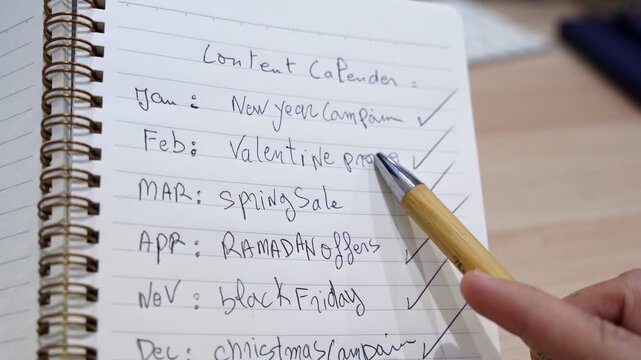 Content Calender :
Jan : New year Campain
Feb : Valentine promo
MAR : spring sale
APR : RAMADAN offers
Nov : black Friday
Dec : christmas Campain